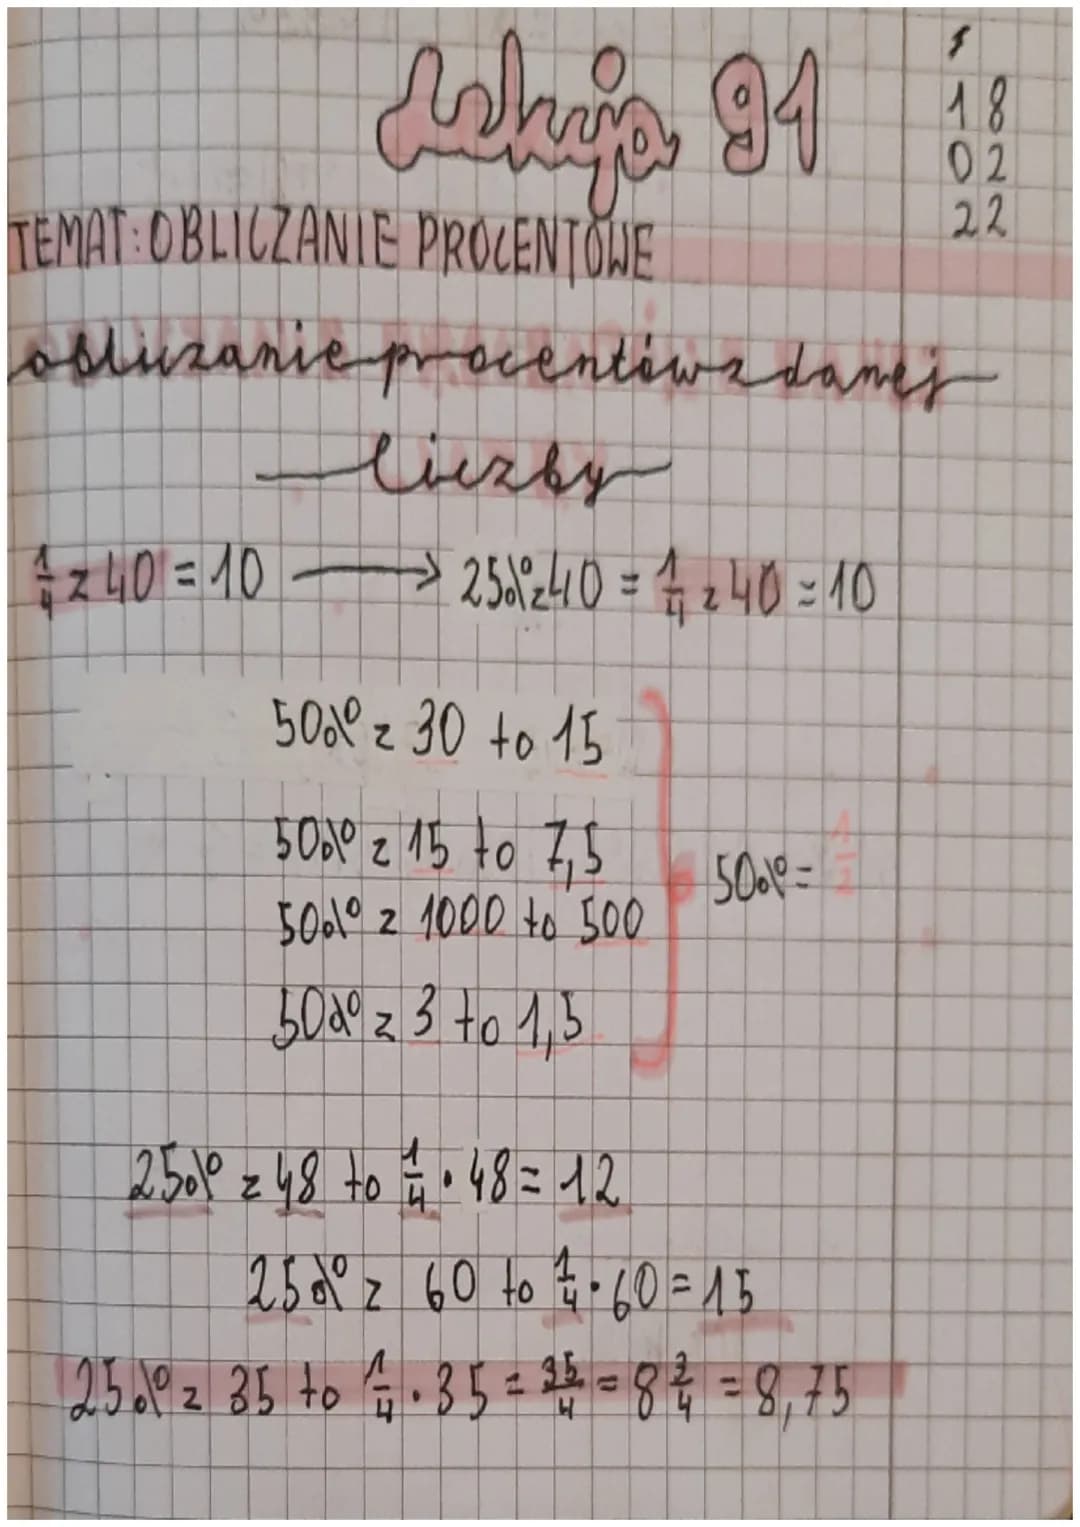 Lekcja 91
18
02
22
TEMAT: OBLICZANIE PROCENTOWE
obliczanie procentów z danej
liczby
1/4 z 40 = 10 → 25% z 40 = 1/4 z 40 = 10
50% z 30 to 15
50% z 15 to 7,5
50% = 1/2
50% z 1000 to 500
50% z 3 to 1,5
25% z 48 to 1/4 · 48 = 12
25% z 60 to 1/4 · 60 = 15
25% z 35 to 1/4 · 35 = 35/4 = 8 3/4 = 8,75